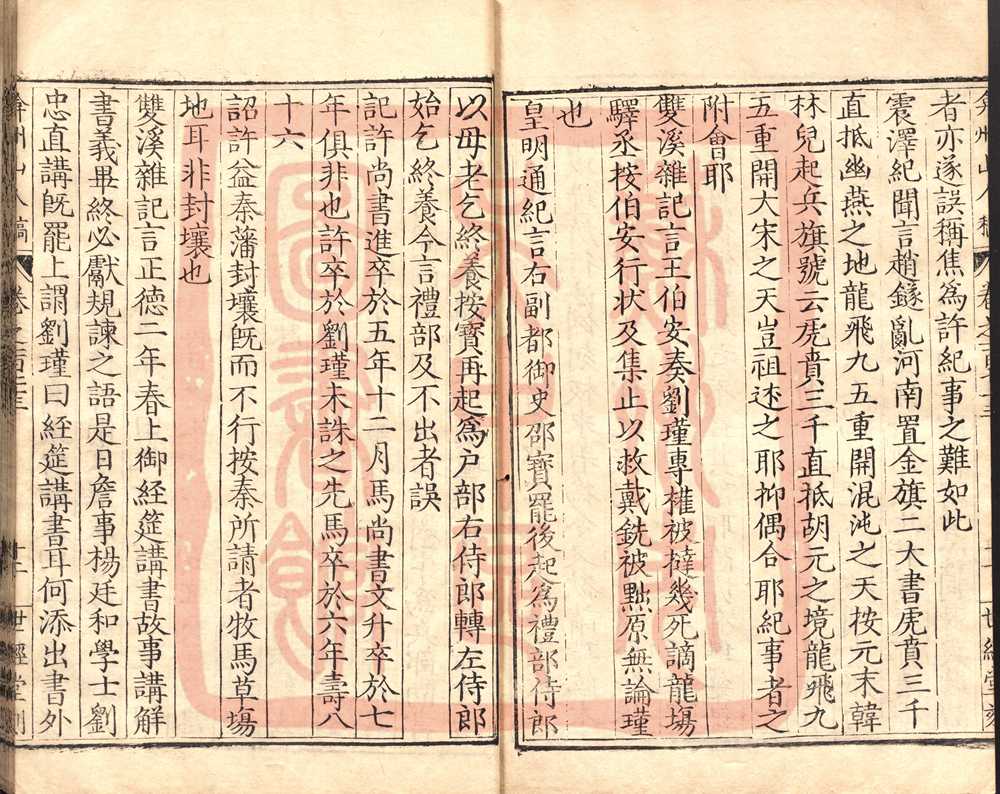 者亦遂誤稱焦爲許紀事之難如此
震澤紀聞言趙鐩亂河南置金旗二大書虎賁三千
直抵幽燕之地龍飛九五重開混沌之天按元末韓
林兒起兵旗號云虎賁三千直抵胡元之境龍飛九
五重開大宋之天豈祖述之耶抑偶合耶紀事者之
附會耶
雙溪雜記言王伯安奏劉瑾專權被撻幾死謫龍塲
驛丞按伯安行狀及集止以救戴銑被㸃原無論瑾
也
皇明通紀言右副都御史邵寶罷後起爲禮部侍郎
以母老乞終養按寶再起爲户部右侍郎轉左侍郎
始乞終養今言禮部及不出者誤
記許尚書進卒於五年十二月馬尚書文升卒於七
年俱非也許卒於劉瑾未誅之先馬卒於六年壽八
十六
詔許益秦藩封壤旣而不行按秦所請者牧馬草塲
地耳非封壤也
雙溪雜記言正德二年春上御經筵講書故事講解
書義畢終必獻規諫之語是日詹事楊廷和學士劉
忠直講旣罷上謂劉瑾曰經筵講書耳何添出書外
弇州山人稿 卷之 十二 世經堂刻